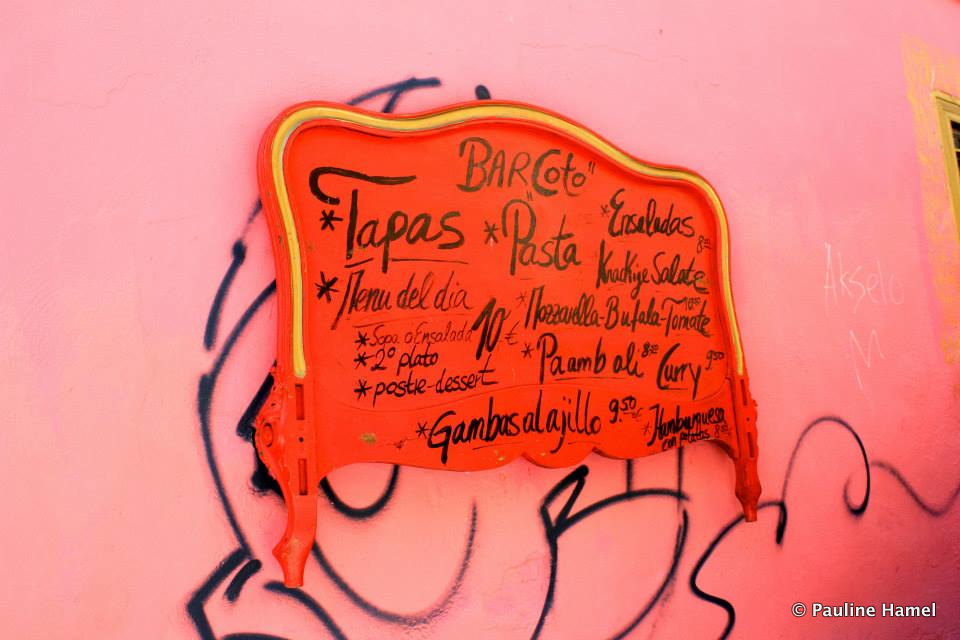 BAR "Coto"
* Tapas
* Pasta
* Ensaladas
8.50
Knackige Salate
* Menu del dia
* Sopa o Ensalada
* 2º plato
* postre-dessert
10 €
* Mozzarella-Bufala-Tomate
10.50
* Pa amb oli 8.50
Curry 9.50
* Gambas al ajillo 9.50 €
* Hamburguesa
con patatas 8.50
Akselo
M
© Pauline Hamel